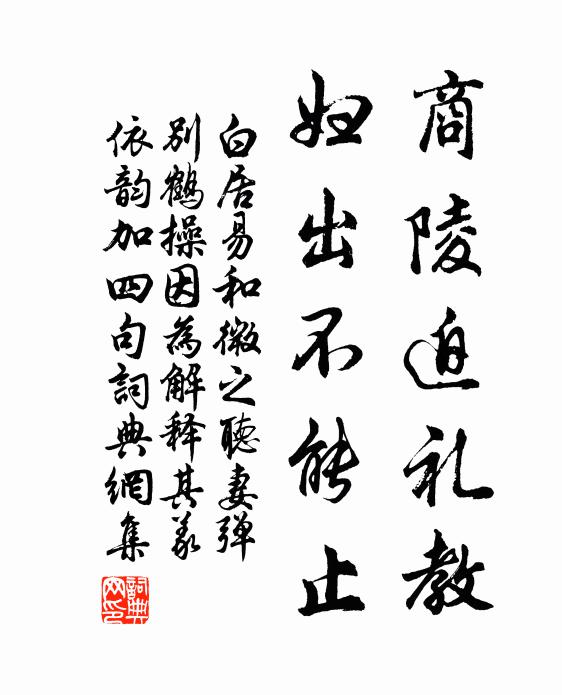 商陵迫礼教
妇出不能止
白居易和微之聽妻弹
别鶴操因為解释其义
依韵加四句詞典網集